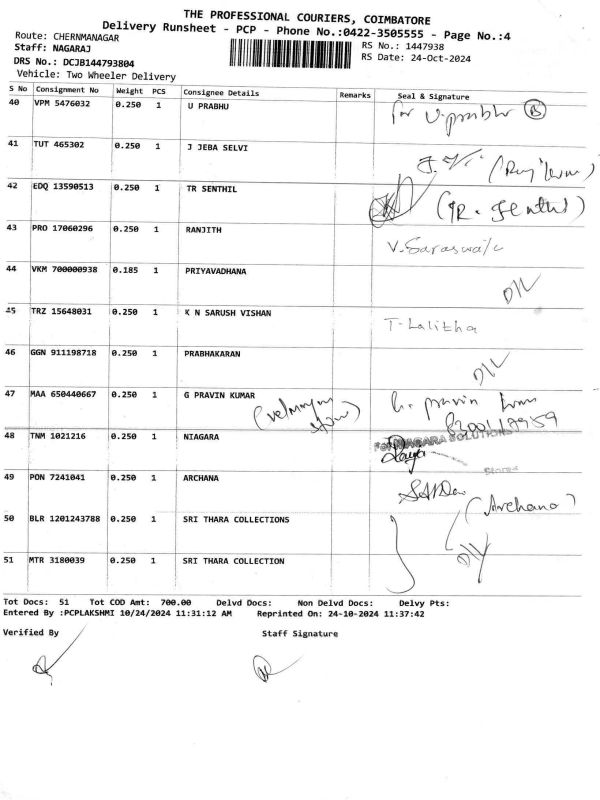 THE PROFESSIONAL COURIERS, COIMBATORE
Delivery Runsheet - PCP - Phone No.:0422-3505555 - Page No.:4
Route: CHERNMANAGAR
RS No.: 1447938
Staff: NAGARAJ
RS Date: 24-Oct-2024
DRS No.: DCJB144793804
Vehicle: Two Wheeler Delivery
S No Consignment No Weight PCS Consignee Details Remarks Seal & Signature
40 VPM 5476032 0.250 1 U PRABHU for U.prabhu
41 TUT 465302 0.250 1 J JEBA SELVI
42 EDQ 13590513 0.250 1 TR SENTHIL (TR. Senthil)
43 PRO 17060296 0.250 1 RANJITH V. Saraswa
44 VKM 700000938 0.185 1 PRIYAVADHANA D/L
45 TRZ 15648031 0.250 1 K N SARUSH VISHAN T-Lalitha
46 GGN 911198718 0.250 1 PRABHAKARAN D/L
47 MAA 650440667 0.250 1 G PRAVIN KUMAR G. pravin
48 TNM 1021216 0.250 1 NIAGARA For NIAGARA SOLUTIONS
49 PON 7241041 0.250 1 ARCHANA (Archana)
50 BLR 1201243788 0.250 1 SRI THARA COLLECTIONS D/L
51 MTR 3180039 0.250 1 SRI THARA COLLECTION
Tot Docs: 51 Tot COD Amt: 700.00 Delvd Docs: Non Delvd Docs: Delvy Pts:
Entered By :PCPLAKSHMI 10/24/2024 11:31:12 AM Reprinted On: 24-10-2024 11:37:42
Verified By Staff Signature